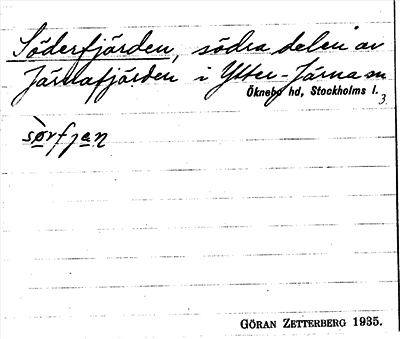 Söderfjärden, södra delen av
Järnafjärden i Ytter-Järna sn
Öknebo hd, Stockholms l.
3
sörfjan
GÖRAN ZETTERBERG 1935.